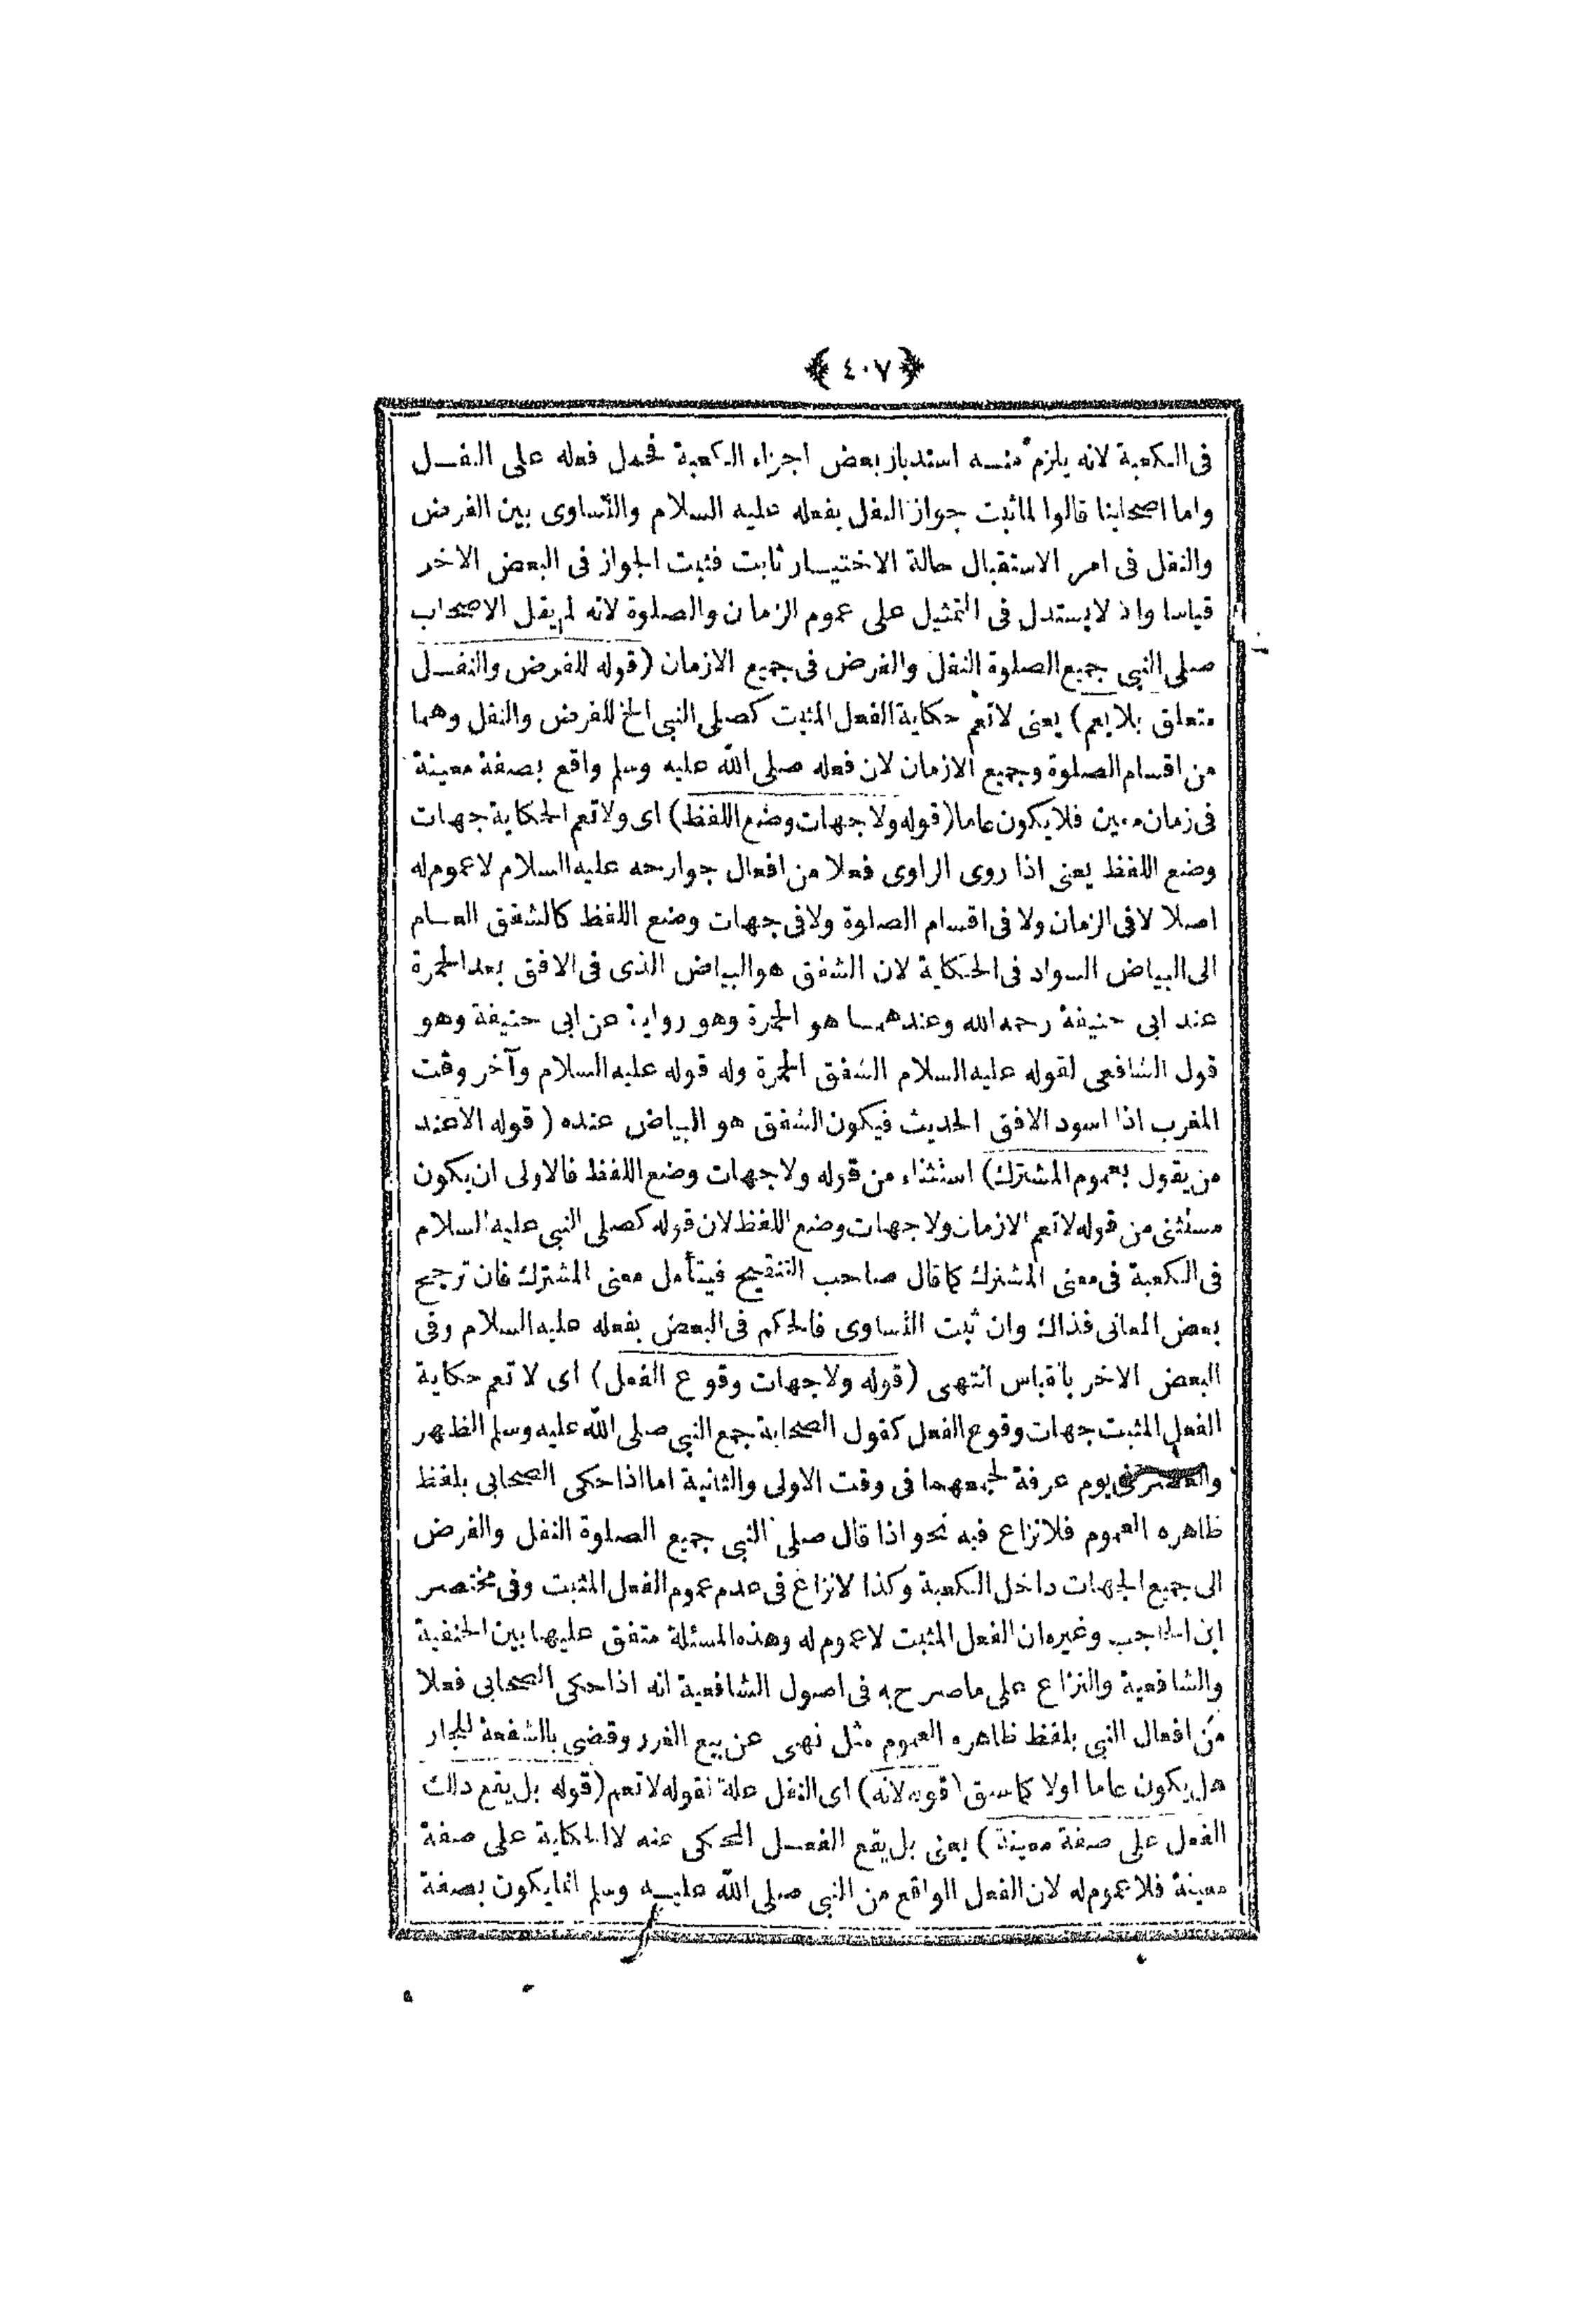 ﴿ ٤٠٧ ﴾
فى الكعبة لانه يلزم منسه استدبار بعض اجزاء الكعبة فحمل فعله على النفسل
واما اصحابنا قالوا لما ثبت جواز النفل بفعله عليه السلام والتساوى بين الفرض
والنفل فى امر الاستقبال حالة الاختيسار ثابت فثبت الجواز فى البعض الاخر
قياسا واذ لايستدل فى التمثيل على عموم الزمان والصلوة لانه لم يقل الاصحاب
صلى النبى جميع الصلوة النفل والفرض فى جميع الازمان (قوله للفرض والنفسل
متعلق بلايعم) يعنى لاتعم حكاية الفعل المثبت كصلى النبى الخ للفرض والنفل وهما
من اقسام الصلوة وجميع الازمان لان فعله صلى الله عليه وسلم واقع بصفة معينة
فى زمان معين فلايكون عاما (قوله ولاجهات وضع اللفظ) اى ولاتعم الحكاية جهات
وضع اللفظ يعنى اذا روى الراوى فعلا من افعال جوارحه عليه السلام لاعموم له
اصلا لافى الزمان ولا فى اقسام الصلوة ولافى جهات وضع اللفظ كالشفق العسام
الى البياض السواد فى الحكاية لان الشفق هو البياض الذى فى الافق بعد الحمرة
عند ابى حنيفة رحمه الله وعندهمسا هو الحمرة وهو رواية عن ابى حنيفة وهو
قول الشافعى لقوله عليه السلام الشفق الحمرة وله قوله عليه السلام وآخر وقت
المغرب اذا اسود الافق الحديث فيكون الشفق هو البياض عنده (قوله الاعند
من يقول بعموم المشترك) استثناء من قوله ولاجهات وضع اللفظ فالاولى ان يكون
مستثنى من قوله لاتعم الازمان ولاجهات وضع اللفظ لان قوله كصلى النبى عليه السلام
فى الكعبة فى معنى المشترك كما قال صاحب التنقيح فيتأمل معنى المشترك فان ترجيح
بعض المعانى فذاك وان ثبت التساوى فالحكم فى البعض بفعله عليه السلام وفى
البعض الاخر بالقياس انتهى (قوله ولاجهات وقوع الفعل) اى لا تعم حكاية
الفعل المثبت جهات وقوع الفعل كقول الصحابة جمع النبى صلى الله عليه وسلم الظهر
والعصر فى يوم عرفة لجمعهما فى وقت الاولى والثانية اما اذا حكى الصحابى بلفظ
ظاهره العموم فلانزاع فيه نحو اذا قال صلى النبى جميع الصلوة النفل والفرض
الى جميع الجهات داخل الكعبة وكذا لانزاع فى عدم عموم الفعل المثبت وفى مختصر
ابن الحاجب وغيره ان الفعل المثبت لاعموم له وهذه المسئلة متفق عليها بين الحنفية
والشافعية والنزاع على ماصرح به فى اصول الشافعية انه اذا حكى الصحابى فعلا
من افعال النبى بلفظ ظاهره العموم مثل نهى عن بيع الغرر وقضى بالشفعة للجار
هل يكون عاما اولا كما سبق (قوله لانه) اى النفل علة لقوله لاتعم (قوله بل يقع ذلك
الفعل على صفة معينة) يعنى بل يقع الفعسل المحكى عنه لا الحكاية على صفة
معينة فلاعموم له لان الفعل الواقع من النبى صلى الله عليه وسلم انما يكون بصفة